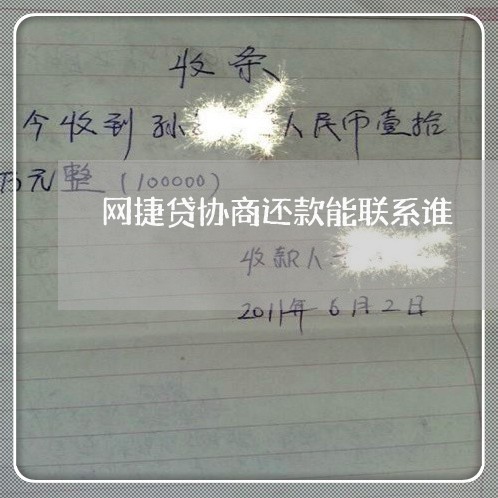 收条
今收到孙 人民币壹拾
万元整（100000）
网捷贷协商还款能联系谁
收款人
2011年6月2日